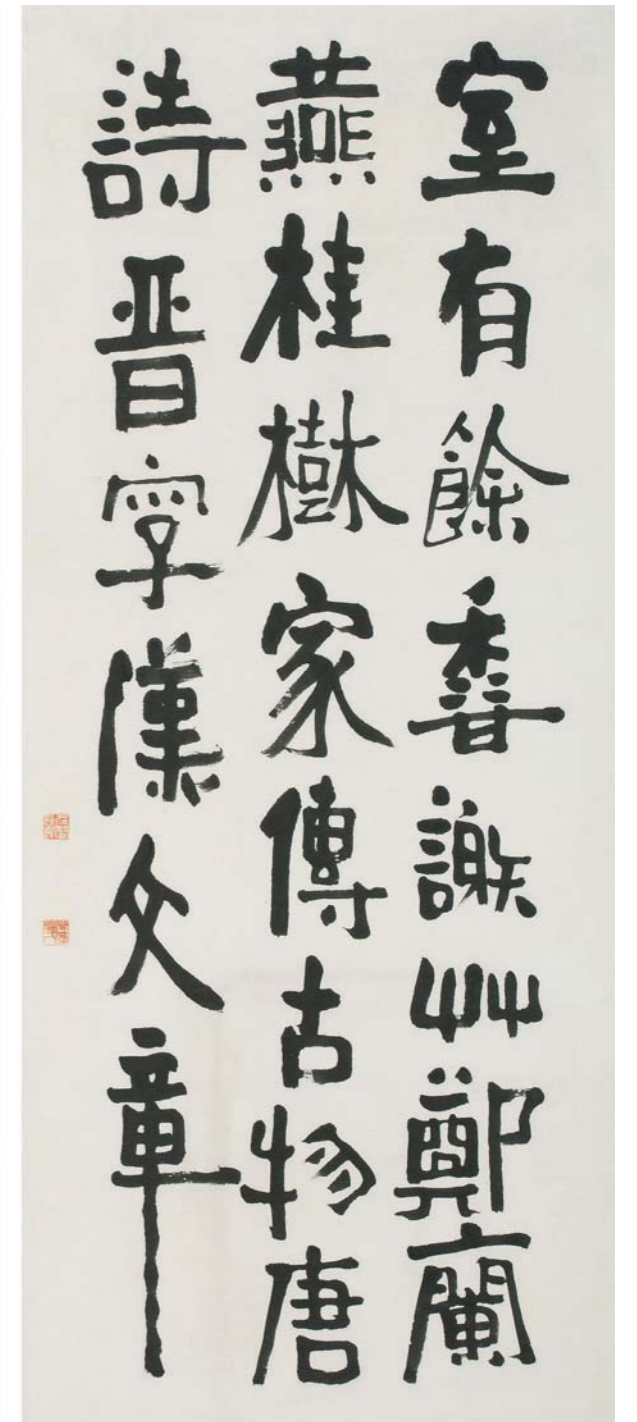 室有餘香謝艸鄭蘭
燕桂樹家傳古物唐
詩晋字漢文章